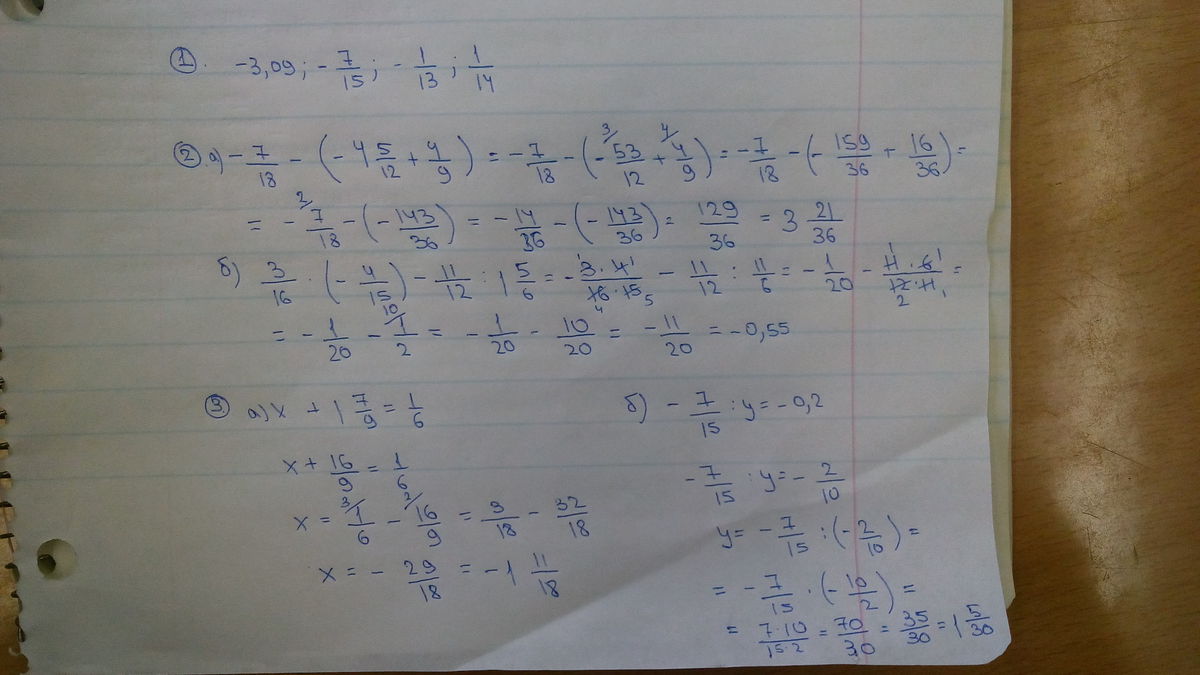 ①. -3,09; -7/15; -1/13; 1/14
② а) -7/18 - (-4 5/12 + 4/9) = -7/18 - (-53/12 + 4/9) = -7/18 - (-159/36 + 16/36) =
= -7/18 - (-143/36) = -14/36 - (-143/36) = 129/36 = 3 21/36
б) 3/16 · (-4/15) - 11/12 : 1 5/6 = -3·4/16·15 - 11/12 : 11/6 = -1/20 - 11·6/12·11 =
= -1/20 - 1/2 = -1/20 - 10/20 = -11/20 = -0,55
③ а) x + 1 7/9 = 1/6
x + 16/9 = 1/6
x = 1/6 - 16/9 = 3/18 - 32/18
x = -29/18 = -1 11/18
б) -7/15 : y = -0,2
-7/15 : y = -2/10
y = -7/15 : (-2/10) =
= -7/15 · (-10/2) =
= 7·10/15·2 = 70/30 = 35/30 = 1 5/30